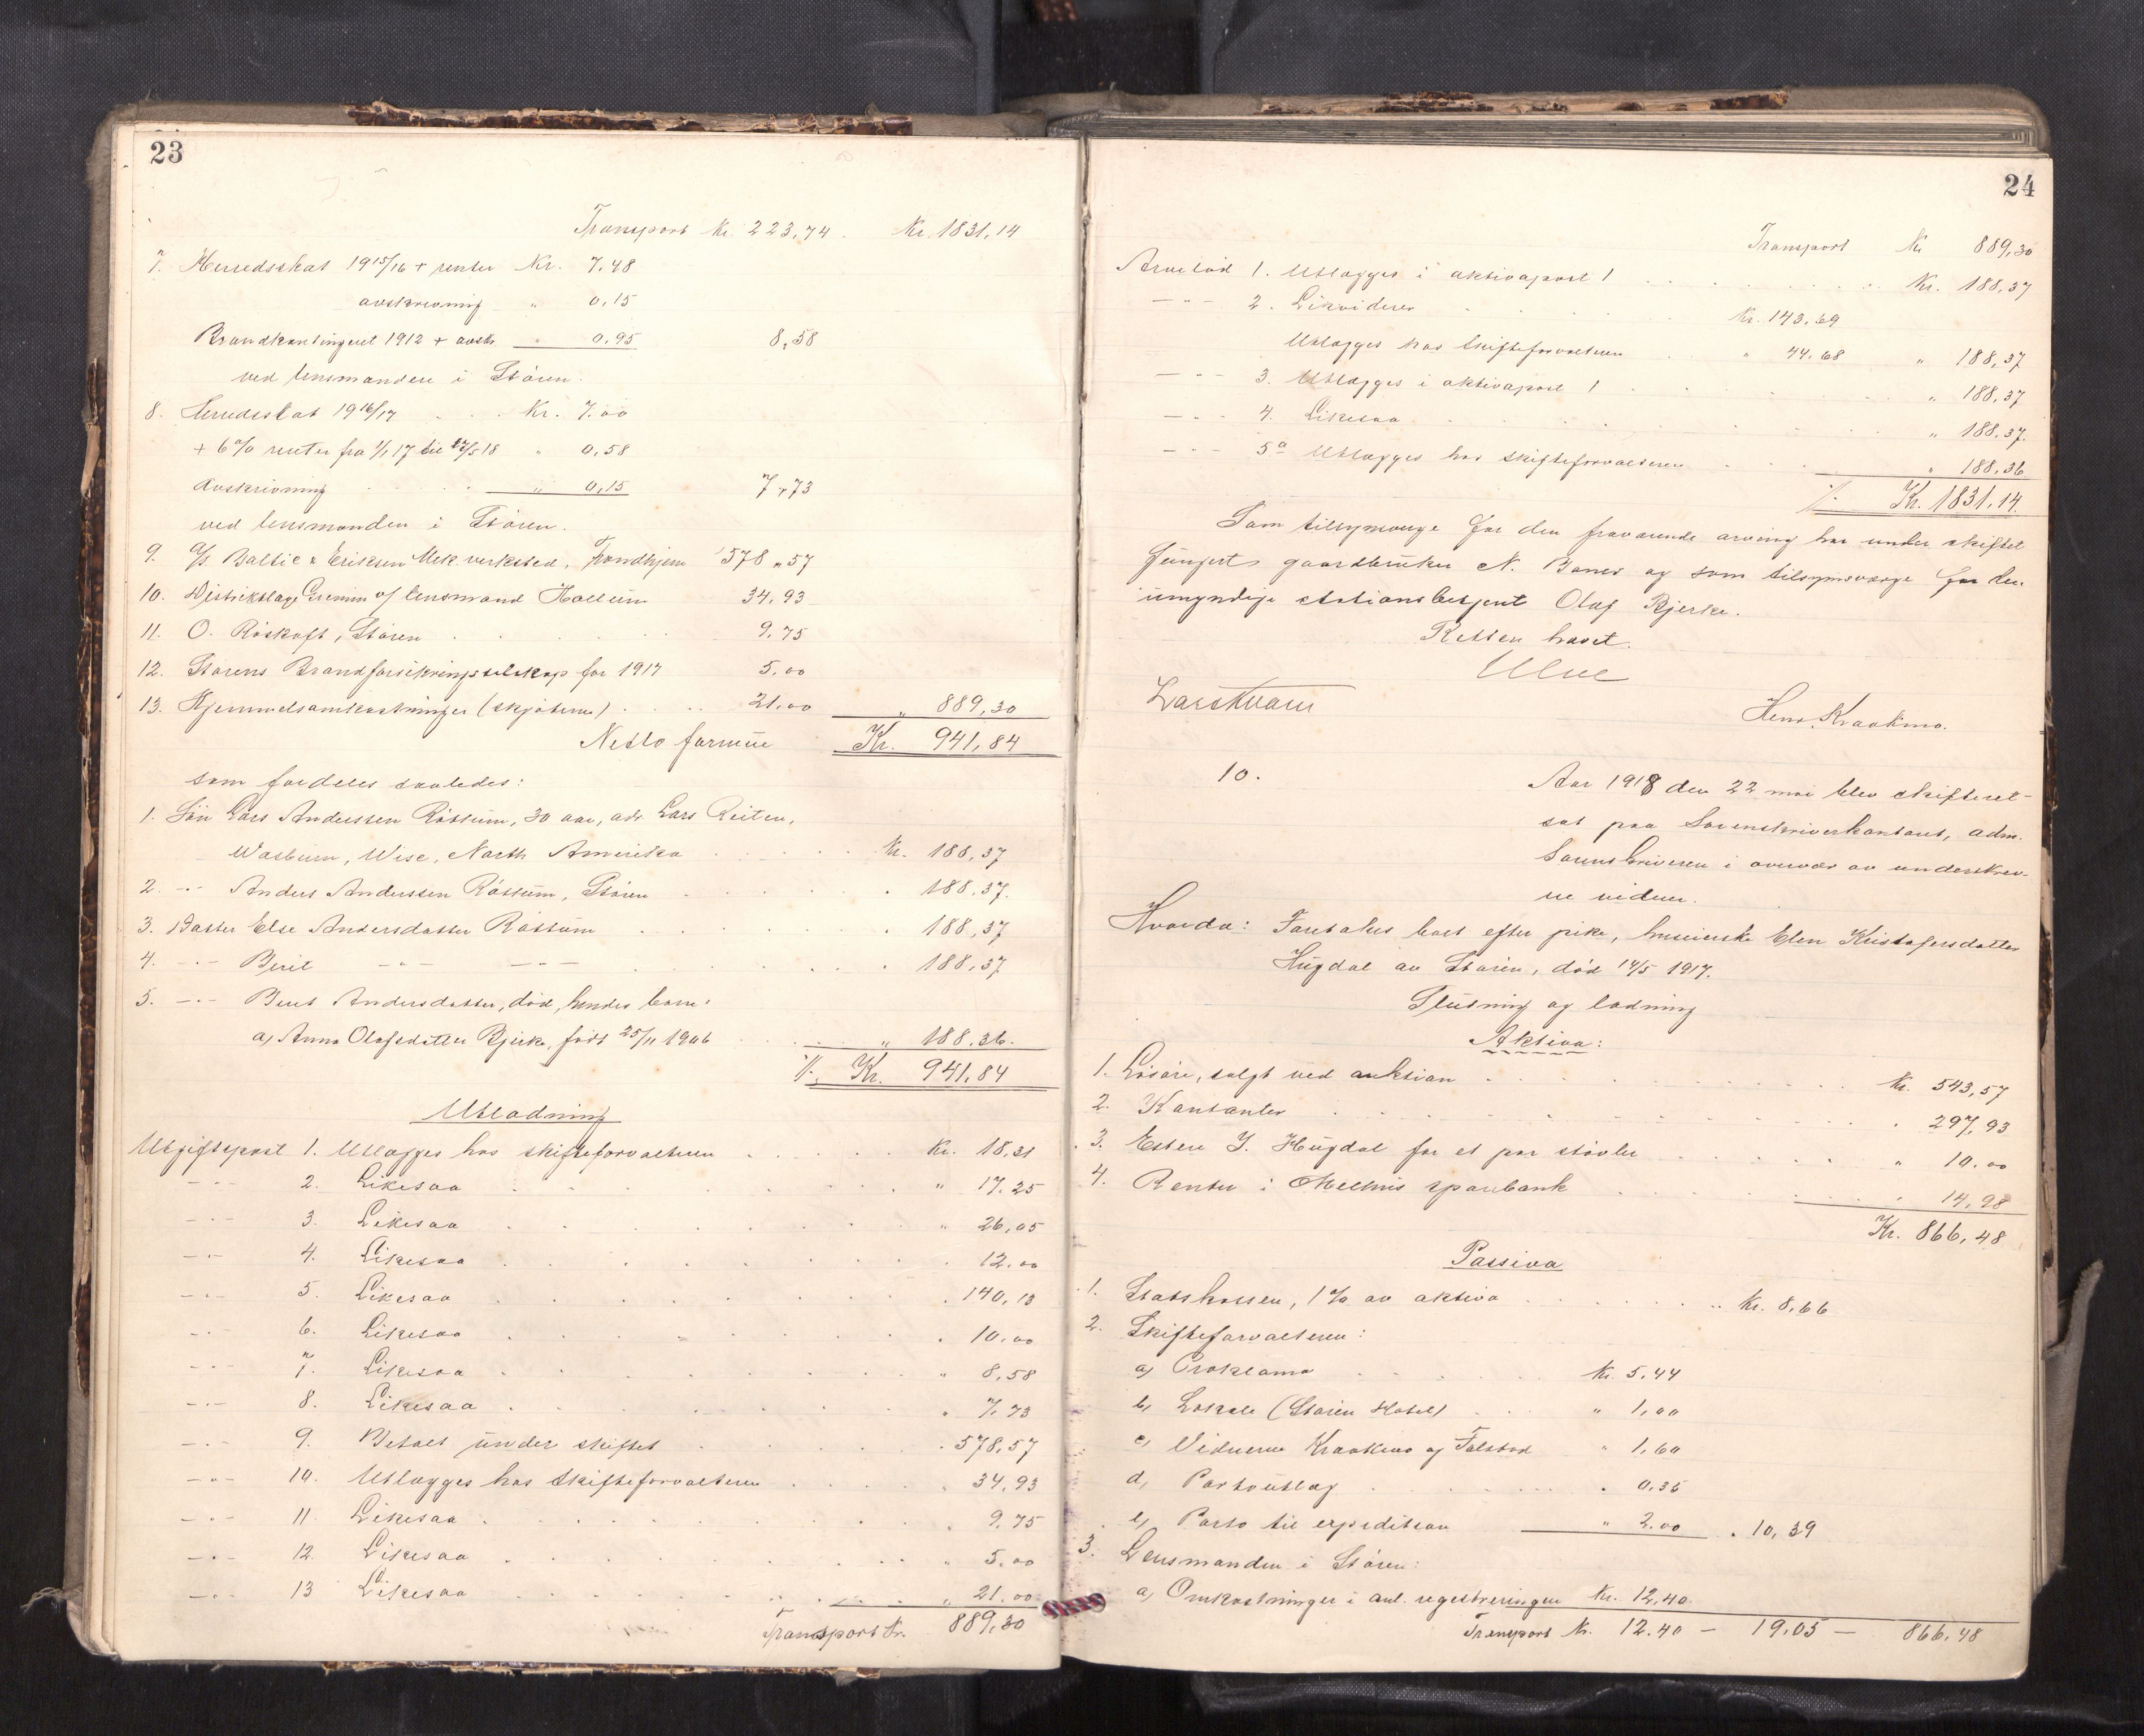 23
Transport Kr. 223,74. Kr. 1831,14
7. Herredsskat 1915/16 + renter Kr. 7,48
avskrivning " 0,15
Brandkontingent 1912 + avskr. " 0,95 8,58
ved lensmanden i Stören.
8. Herredsskat 1916/17 . . . Kr. 7.00
+ 6% renter fra 1/1 17 til 27/5 18 " 0,58
Avskrivning . . . " 0,15 7,73
ved lensmanden i Stören.
9. A/S Baltic & Eriksen Mek. verksted, Trondhjem 578,57
10. Distriktslæge Gremm v/ lensmand Hollum 34,93
11. O. Röskaft, Stören . . . 9,75
12. Störens Brandforsikringsselskap for 1917 5.00
13. Hjemmelsomkostninger (skjöterne) . . . 21.00 " 889,30
Netto formue Kr. 941,84
som fordeles saaledes:
1. Sön Lars Anderssen Rössum, 30 aar, adr. Lars Reiten,
Wasburn, Wisc. North Amerika . . . Kr. 188,37
2. -"- Anders Anderssen Rössum, Stören . . . 188,37.
3. Datter Else Andersdatter Rössum . . . 188,37
4. -"- Berit -"- -"- . . . 188,37
5. -"- Beret Andersdatter, död, hendes barn:
a) Anna Olafsdatter Bjerke, född 25/11 1906 . . . " 188.36.
./. Kr. 941,84
Utlodning
Utgiftspost 1. Utlægges hos skifteforvalteren . . . Kr. 18,31
-"- 2. Likesaa . . . " 17.25
-"- 3. Likesaa . . . " 26,05
-"- 4. Likesaa . . . 12.00
-"- 5. Likesaa . . . 140,13
-"- 6. Likesaa . . . 10.00
-"- 7. Likesaa . . . " 8,58
-"- 8. Likesaa . . . 7,73
-"- 9. Betalt under skiftet . . . 578,57
-"- 10. Utlægges hos Skifteforvalteren . . . 34,93
-"- 11. Likesaa . . . 9,75
-"- 12. Likesaa . . . " 5.00
-"- 13 Likesaa . . . " 21.00
Transport Kr. 889,30
24
Transport Kr 889,30
Arvelod 1. Utlægges i aktivapost 1 . . . Kr. 188,37
-"- 2. Likviderer . . . Kr. 143,69
Utlægges hos Skifteforvalteren " 44,68 " 188,37
-"- 3. Utlægges i aktivapost 1 . . . " 188,37
-"- 4. Likesaa . . . " 188,37.
-"- 5a Utlægges hos skifteforvalteren . . . " 188,36
./. Kr. 1831,14.
Som tilsynsverge for den fraværende arving har under skiftet
fungert gaardbruker N. Bones og som tilsynsverge for den
umyndige stationsbetjent Olaf Bjerke.
Retten hævet.
Lars Kvam
Henr. Kraakmo.
10.
Aar 1918 den 22 mai blev skifteret
sat paa Sorenskriverkontoret, adm.
Sorenskriveren i overvær av underskrev-
ne vidner.
Hvorda: Foretokes boet efter pike, huseierske Elen Kristofersdatter
Hugdal av Stören, död 14/5 1917.
Slutning og lodning
Aktiva:
1. Lösöre, solgt ved auktion . . . Kr. 543,57
2. Kontanter . . . 297,93
3. Esten J. Hugdal for et par stövler . . . " 10.00
4. Renter i Melhus sparebank . . . 14,98
Kr. 866,48
Passiva
1. Statskassen, 1% av aktiva . . . Kr. 8,66
2. Skifteforvalteren:
a) Proklama . . . Kr. 5,44
b) Lokale (Stören Hotel) . . . " 1,00
c) Vidnerne Kraakmo og Folstad " 1,60
d) Portoutlæg . . . 0,35
e) Porto til expedition " 2.00 . 10,39
3. Lensmanden i Stören:
a) Omkostninger i anl. registreringen Kr. 12,40
Transport Kr. 12.40 — 19,05 — 866,48